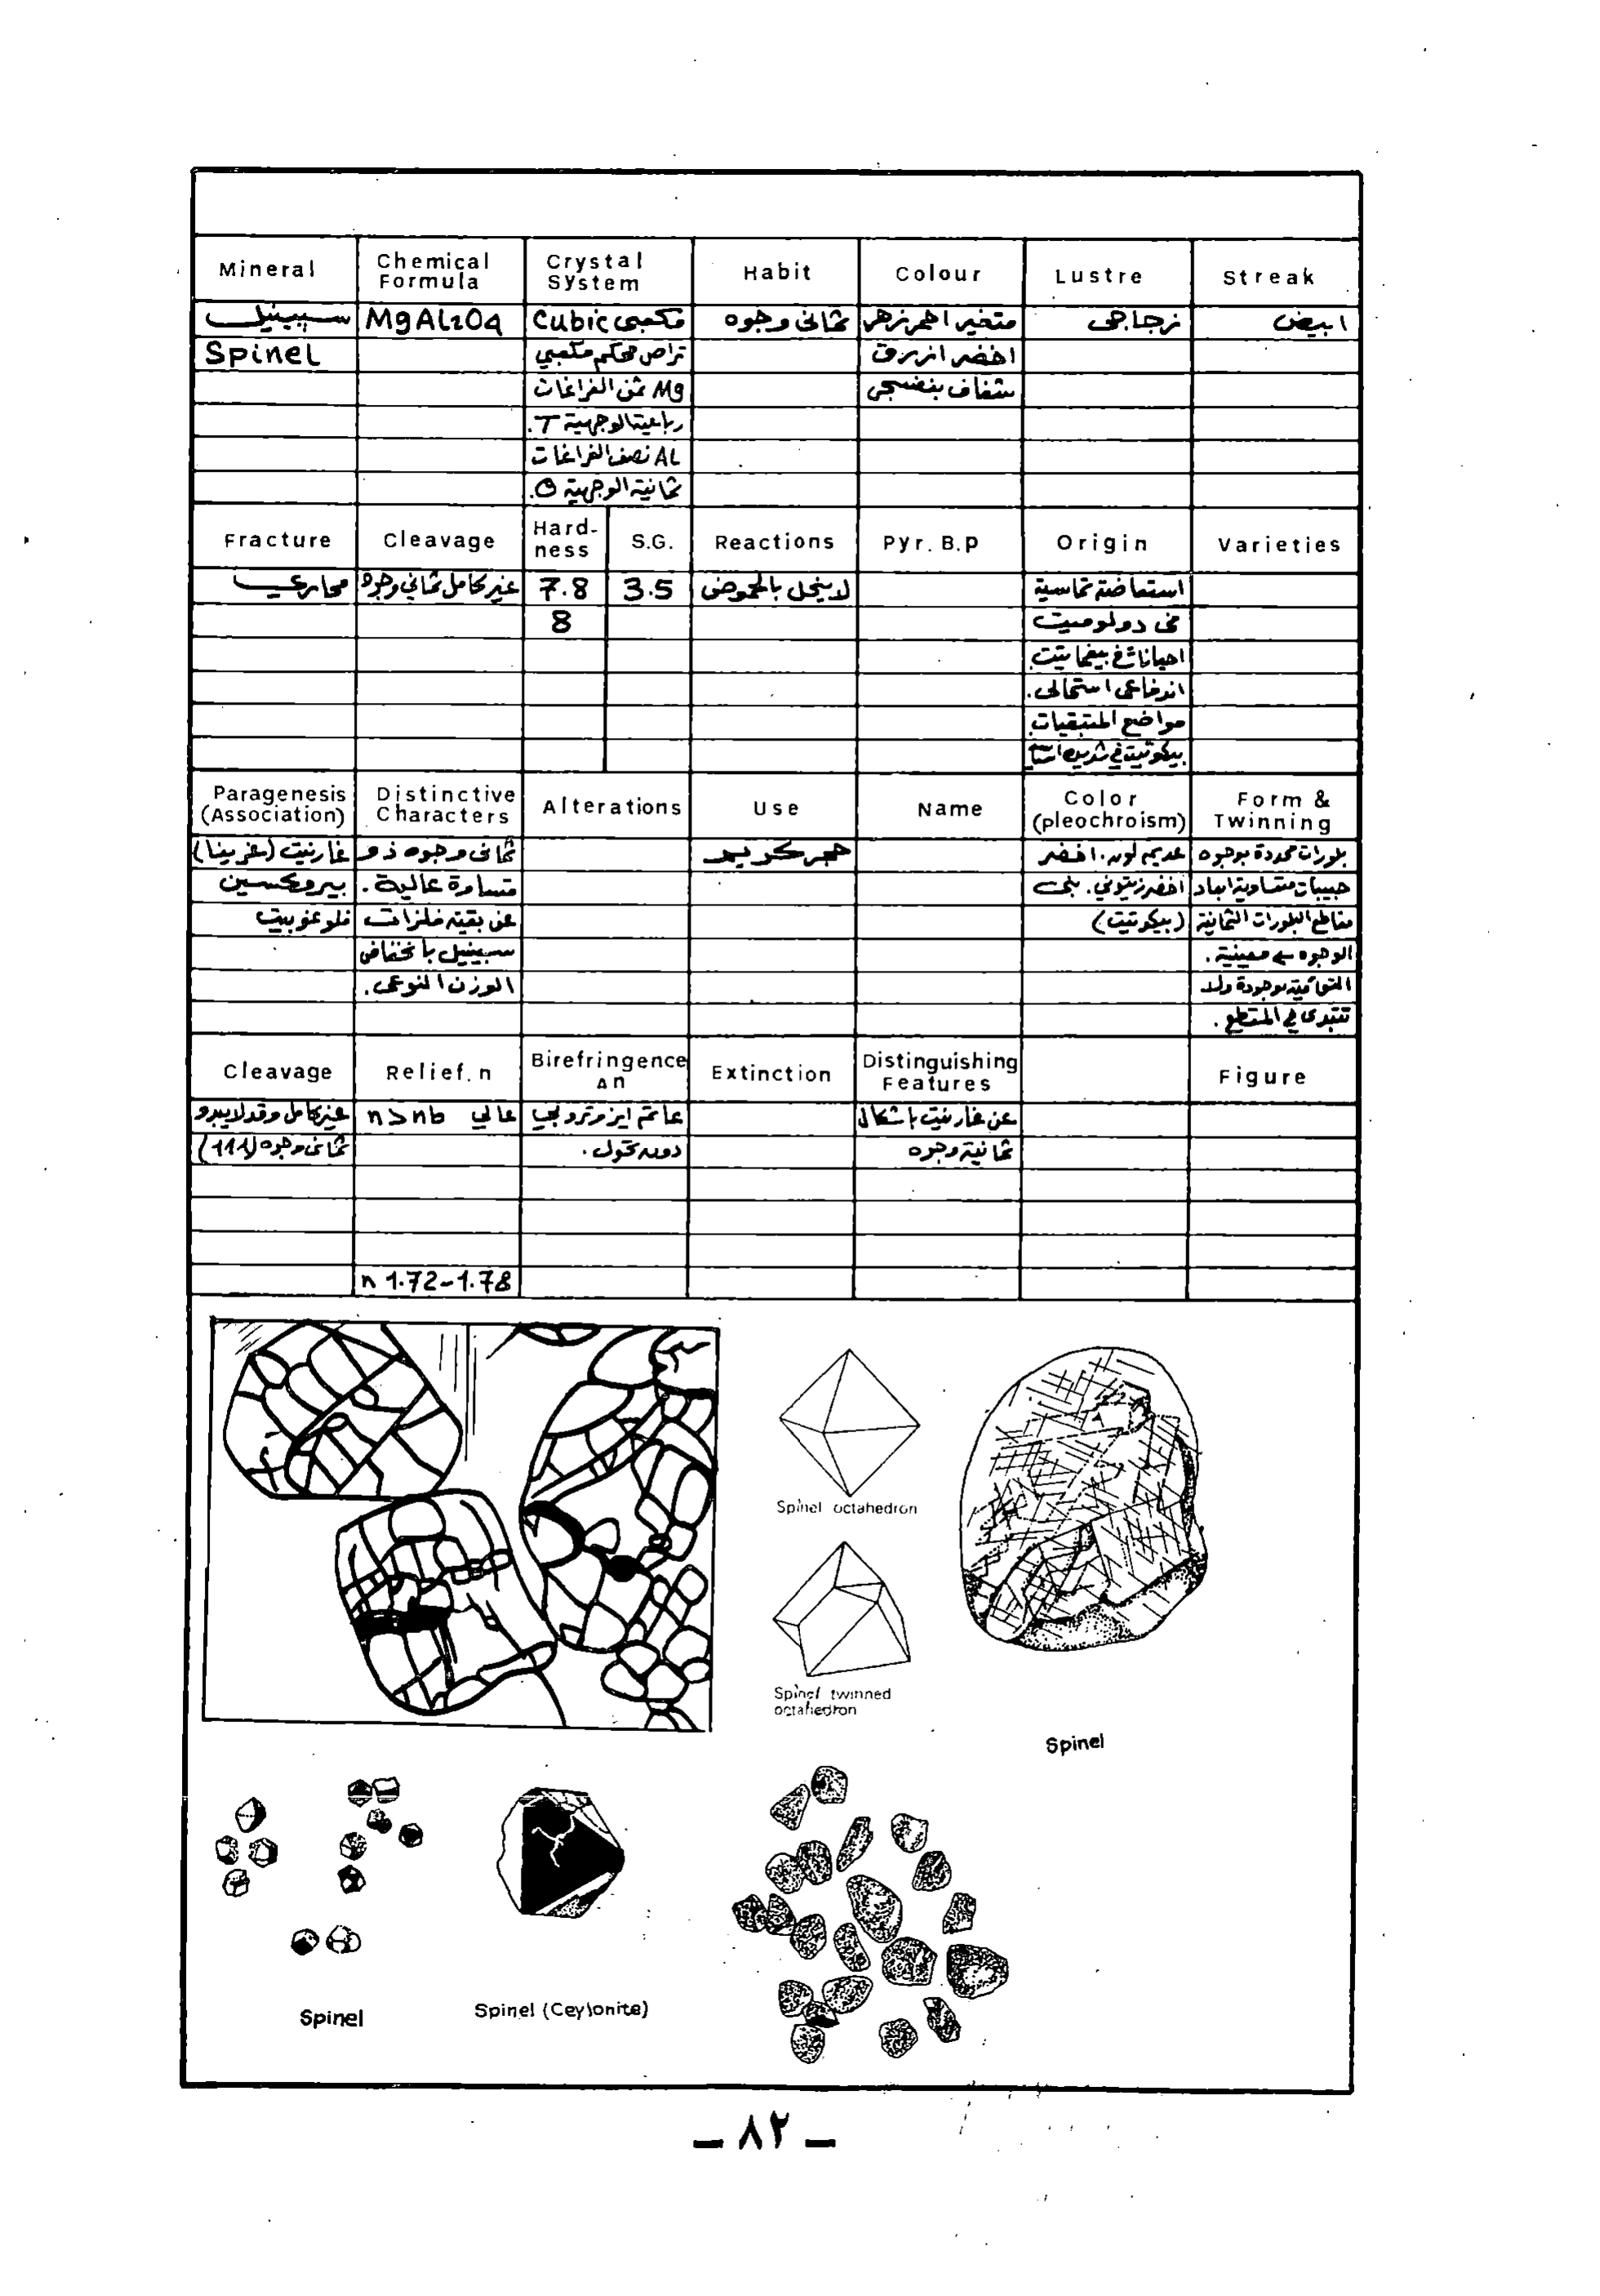 Mineral
Chemical Formula
Crystal System
Habit
Colour
Lustre
Streak
سبينيل
MgAl2O4
Cubic مكعبي
ثماني وجوه
متغير احمر زهر
زجاجي
ابيض
Spinel
تراص محكم مكعبي
اخضر ازرق
Mg ثمن الفراغات
شفاف بنفسجي
رباعية الوجهية T.
AL نصف الفراغات
ثمانية الوجهية O.
Fracture
Cleavage
Hard-ness
S.G.
Reactions
Pyr. B.p
Origin
Varieties
محاري
غير كامل ثماني وجوه
7.8
3.5
لا ينحل بالحموض
استعاضة تماسية
8
في دولوميت
احيانا في بيغماتيت
اندفاعي استحالي.
مواضع المتبقيات
بيكوتيت في
Paragenesis (Association)
Distinctive Characters
Alterations
Use
Name
Color (pleochroism)
Form & Twinning
غارنيت (غرينا)
ثماني وجوه ذو
حجر كريم
عديم لون. اخضر
بلورات محددة بوجوه
بيروكسين
قساوة عالية.
اخضر زيتوني. بني
حبيبات متساوية ابعاد
فلوغوبيت
عن بقية فلزات
(بيكوتيت)
مقاطع البلورات الثمانية
سبينيل بانخفاض
الوجوه معينية.
الوزن النوعي.
التوائمية موجودة ولا
تتبدى في المقطع.
Cleavage
Relief. n
Birefringence Δn
Extinction
Distinguishing Features
Figure
غير كامل وقد لا يبدو
عالي n>nb
عاتم ايزوتروبي
عن غارنيت باشكال
ثماني وجوه (111)
دون تحول.
ثمانية وجوه
n 1.72-1.78
Spinel octahedron
Spinel twinned
octahedron
Spinel
Spinel
Spinel (Ceylonite)
_ ٨٢ _